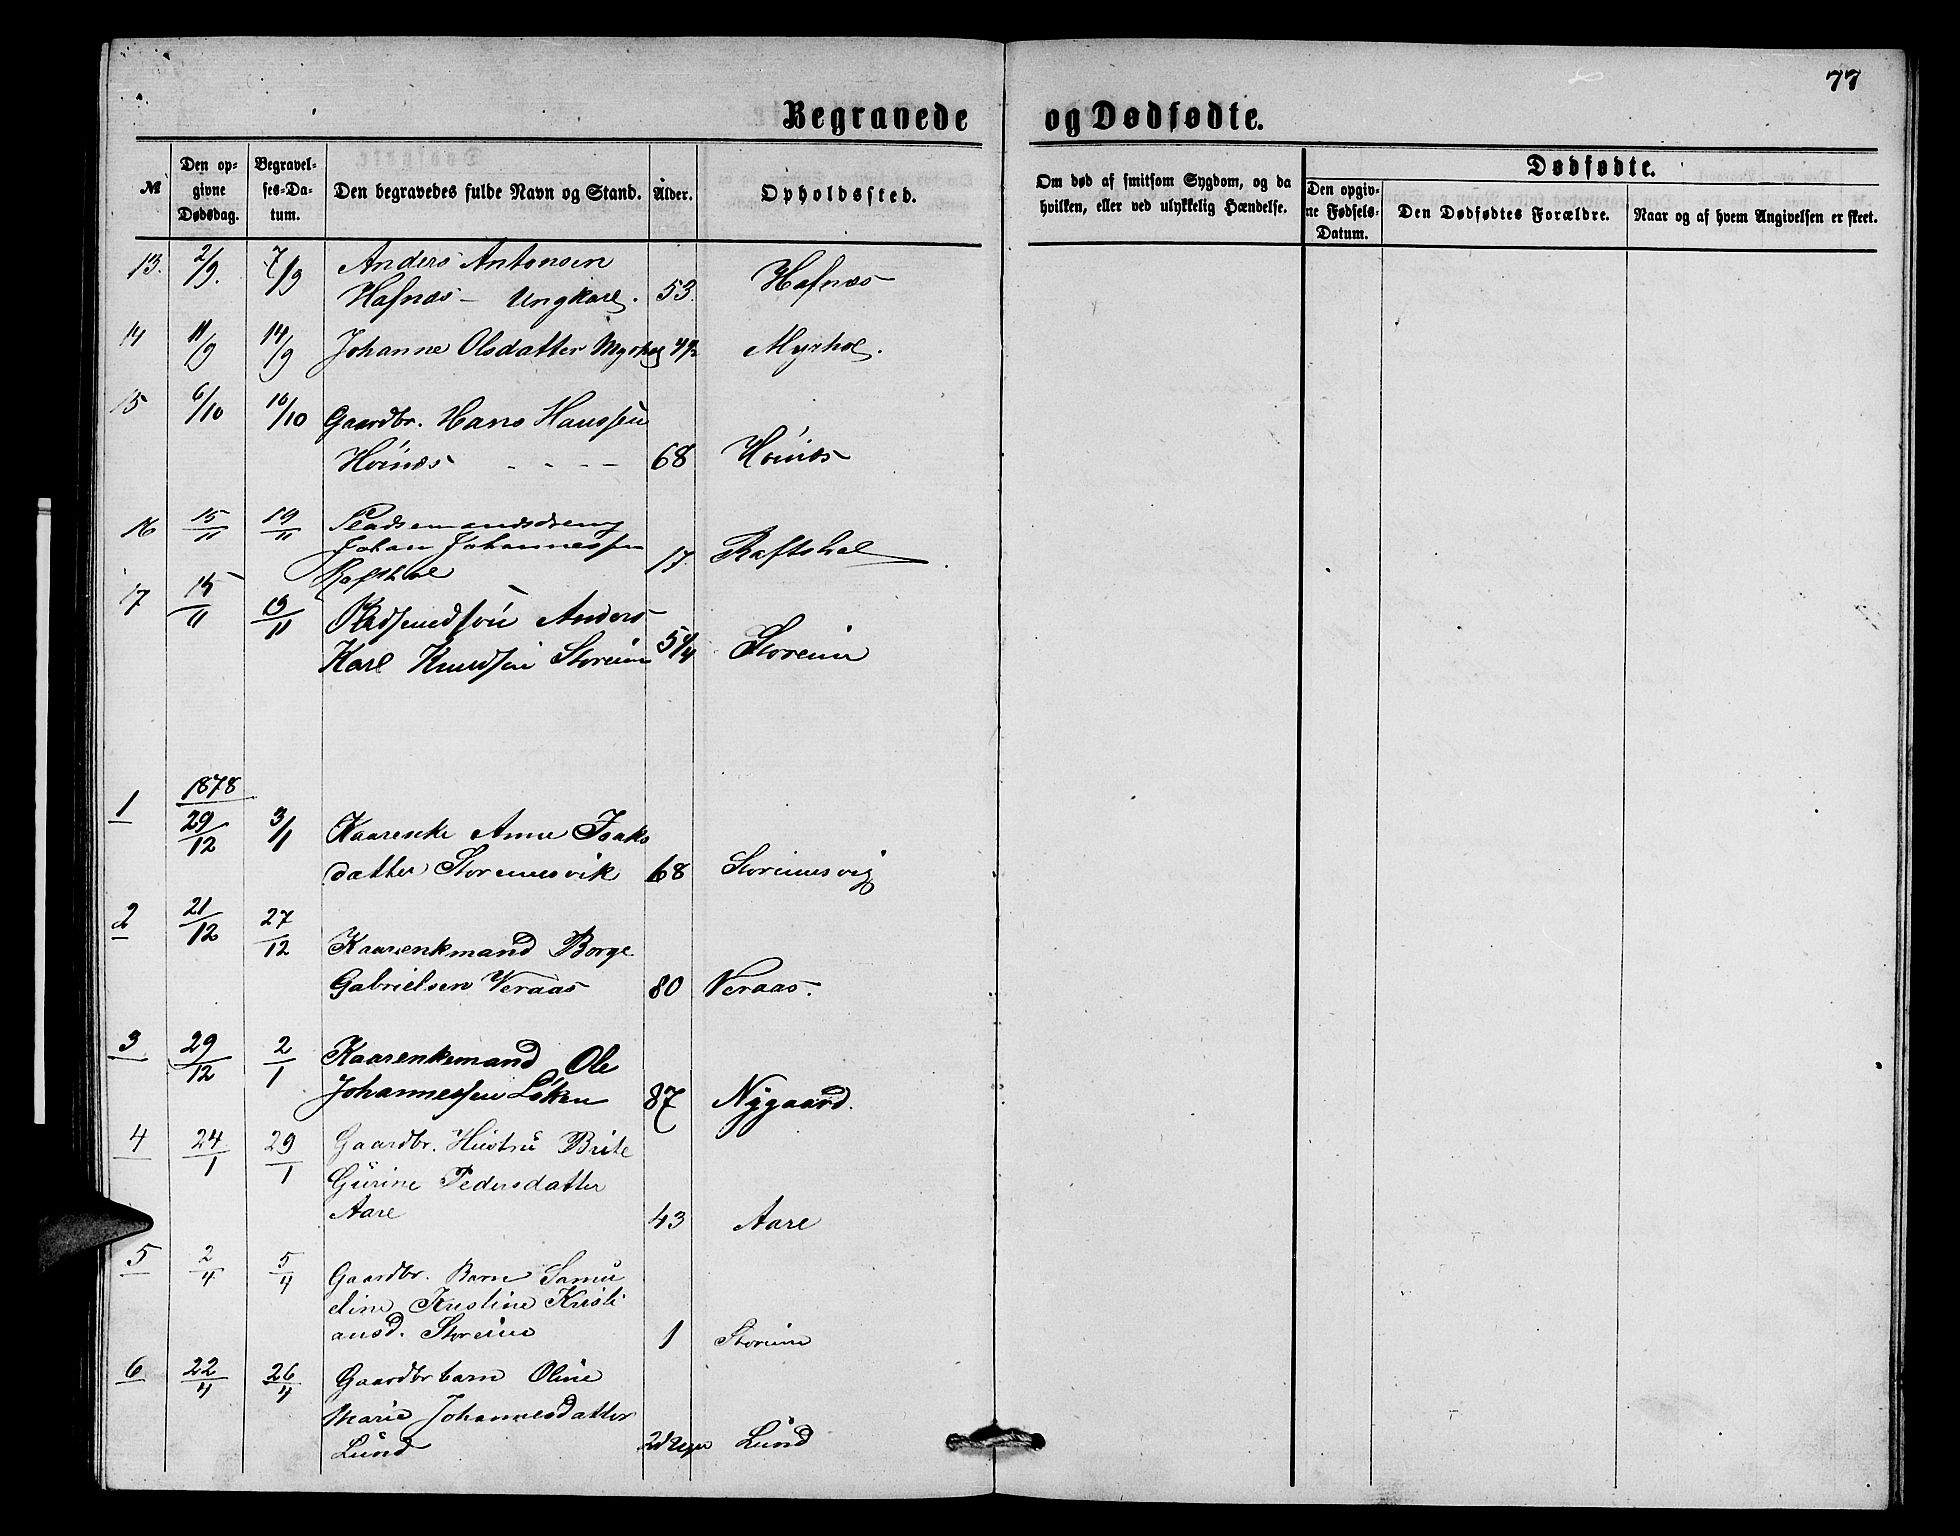 77
Begravede og Dødfødte.
№ Den opgivne Dødsdag. Begravelses-Datum. Den begravedes fulde Navn og Stand. Alder. Opholdssted. Om død af smitsom Sygdom, og da hvilken, eller ved ulykkelig Hændelse. Dødfødte. Den opgivne Fødsels-Datum. Den Dødfødtes Forældre. Naar og af hvem Angivelsen er skeet.
13. 2/9. 7/9 Anders Antonsen
Hafnæs – Ungkarl. 53. Hafnæs
14 11/9 14/9 Johanne Olsdatter Myrhol Myrhol.
15 6/10 10/10 Gaardbr. Hans Hanssen
Hoinæs - - - - 68 Hoinæs
16 15/11 19/11 Pladsemandsdreng
Johan Johannessen 17. Raftshol
Raftshol
17 15/11 19/11 Anders
Karl Knudsen Storeim 5 1/4 Storeim
1878
1 29/12 3/1 Kaareneke Anne Isaks
datter Storeimsvik 68 Storeimsvig
2 21/12 27/12 Kaarenkmand Borge
Gabrielsen Veraas 80 Veraas.
3 29/12 2/1 Kaarenkemand Ole
Johannessen Løken 87 Nygaard.
4 24/1 29/1 Gaardbr. Hustru Brite
Gurine Pedersdatter
Aare 43 Aare
5 2/4 5/4 Gaardbr. Barn Samu
eline Kristine Kristi
ansd. Storeim 1 Storeim
6 22/4 26/4 Gaardbr barn Oline
Marie Johannesdatter
Lund Lund